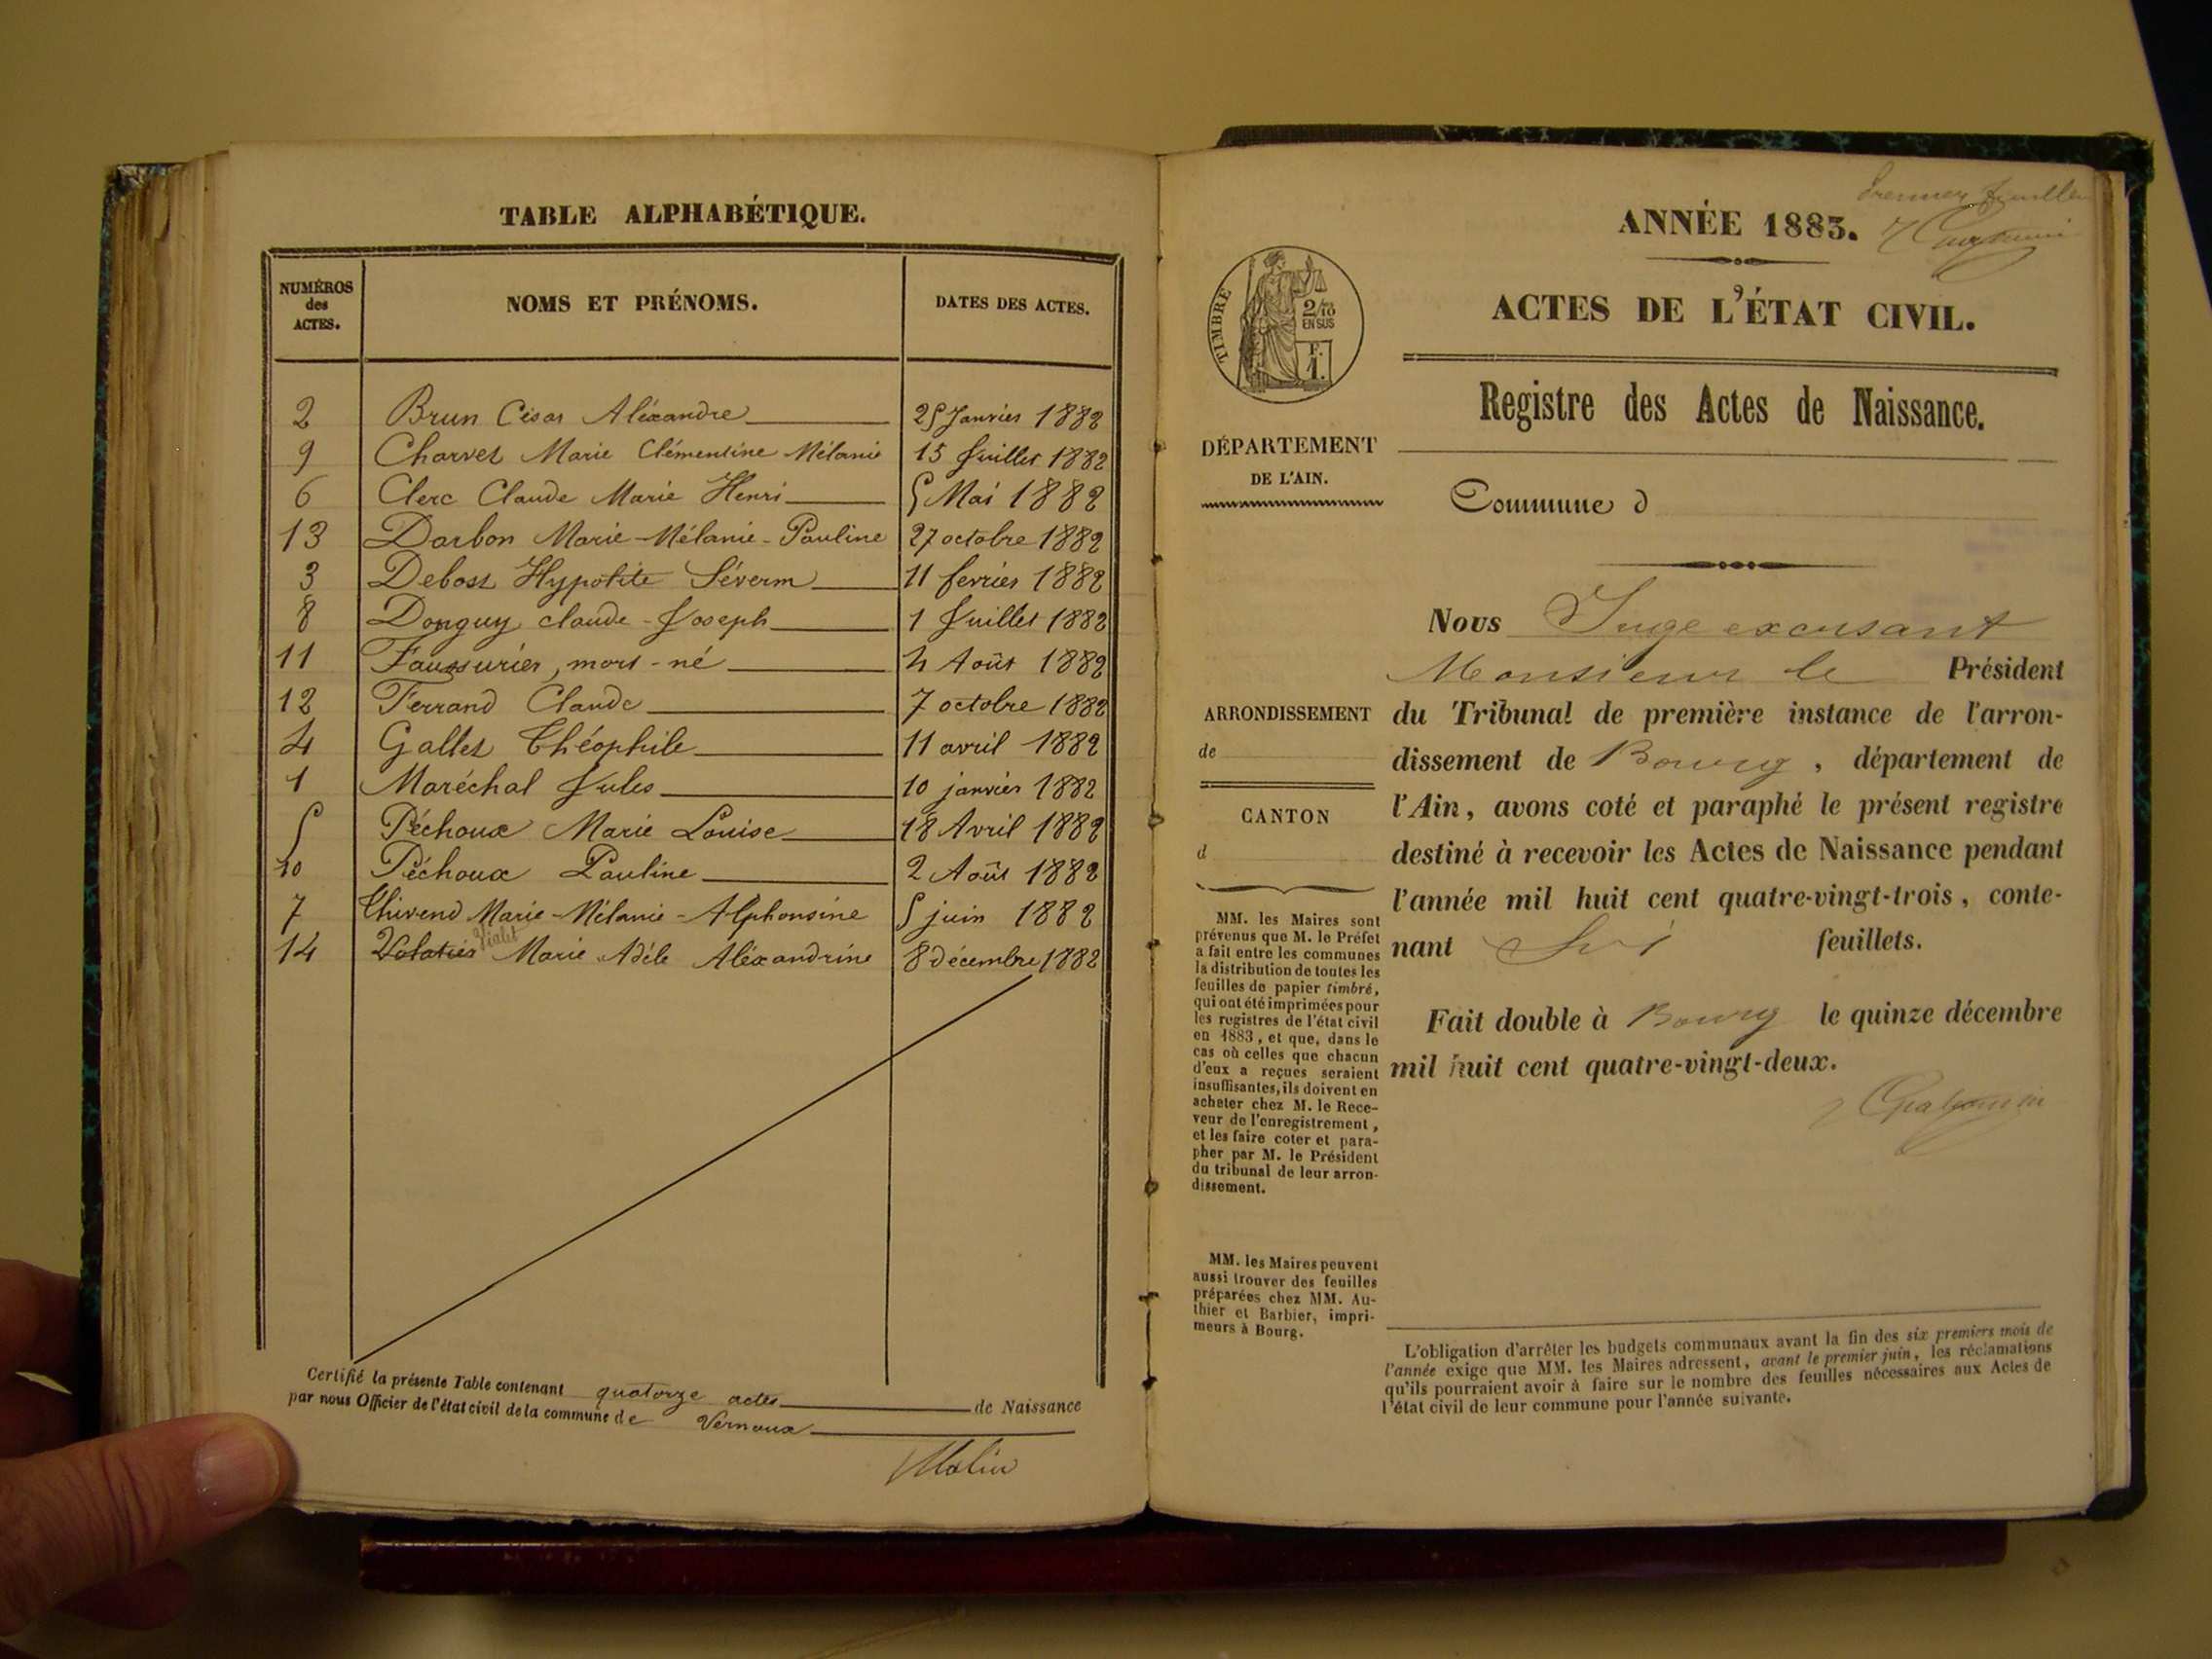 TABLE ALPHABÉTIQUE.
NUMÉROS des ACTES. NOMS ET PRÉNOMS. DATES DES ACTES.
2 Brun César Aléxandre 25 Janvier 1882
9 Charvet Marie Clémentine Mélanie 15 Juillet 1882
6 Clerc Claude Marie Henri 5 Mai 1882
13 Darbon Marie-Mélanie-Pauline 27 octobre 1882
3 Debost Hypolite Séverin 11 fevrier 1882
8 Donguy claude-Joseph 1 Juillet 1882
11 Faussurier, mort-né 4 Août 1882
12 Ferrand Claude 7 octobre 1882
4 Gallet Théophile 11 avril 1882
1 Maréchal Jules 10 janvier 1882
5 Péchoux Marie Louise 18 Avril 1882
10 Péchoux Pauline 2 Août 1882
7 Thivend Marie-Mélanie-Alphonsine 5 juin 1882
Vialet
14 Marie Adèle Aléxandrine 8 décembre 1882
Certifié la présente Table contenant quatorze actes de Naissance
par nous Officier de l'état civil de la commune de Vernoux
ANNÉE 1883.
ACTES DE L'ÉTAT CIVIL.
TIMBRE
2/10
EN SUS
F.
1.
Registre des Actes de Naissance.
DÉPARTEMENT
DE L'AIN.
Commune d
Nous Juge excusant
Monsieur le Président
ARRONDISSEMENT
de
du Tribunal de première instance de l'arron-
dissement de Bourg, département de
CANTON
d
l'Ain, avons coté et paraphé le présent registre
destiné à recevoir les Actes de Naissance pendant
l'année mil huit cent quatre-vingt-trois, conte-
nant feuillets.
Fait double à Bourg le quinze décembre
mil huit cent quatre-vingt-deux.
MM. les Maires sont
prévenus que M. le Préfet
a fait entre les communes
la distribution de toutes les
feuilles de papier timbré,
qui ont été imprimées pour
les registres de l'état civil
en 1883, et que, dans le
cas où celles que chacun
d'eux a reçues seraient
insuffisantes, ils doivent en
acheter chez M. le Rece-
veur de l'enregistrement,
et les faire coter et para-
pher par M. le Président
du tribunal de leur arron-
dissement.
MM. les Maires peuvent
aussi trouver des feuilles
préparées chez MM. Au-
thier et Barbier, impri-
meurs à Bourg.
L'obligation d'arrêter les budgets communaux avant la fin des six premiers mois de
l'année exige que MM. les Maires adressent, avant le premier juin, les réclamations
qu'ils pourraient avoir à faire sur le nombre des feuilles nécessaires aux Actes de
l'état civil de leur commune pour l'année suivante.